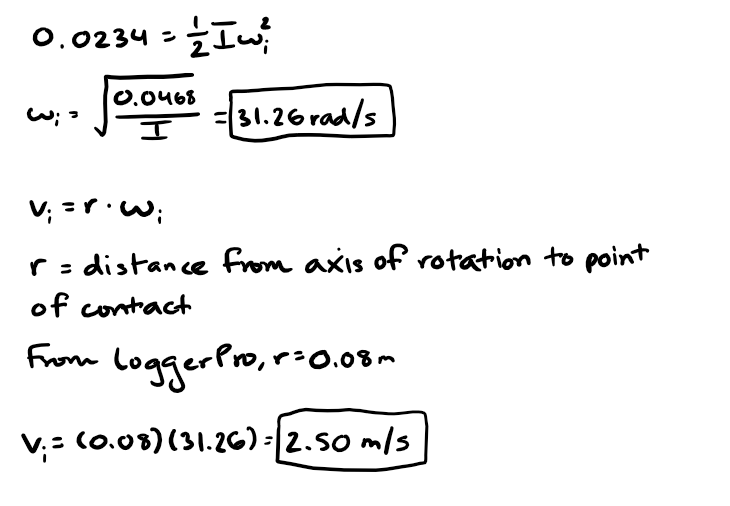 0.0234 = 1/2 I ω_i^2
ω_i = √(0.0468/I) = 31.26 rad/s
v_i = r · ω_i
r = distance from axis of rotation to point
of contact
From LoggerPro, r=0.08m
v_i = (0.08)(31.26) = 2.50 m/s